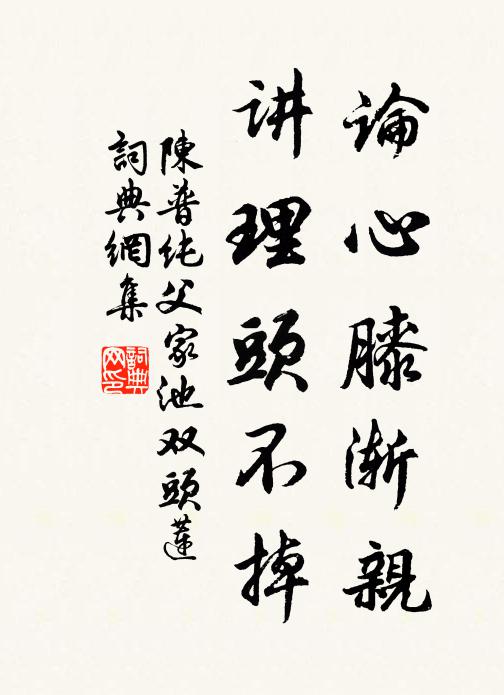 論心膝漸親
讲理頭不掉
陳普纯父家池双頭蓮
詞典網集
詞典
网印